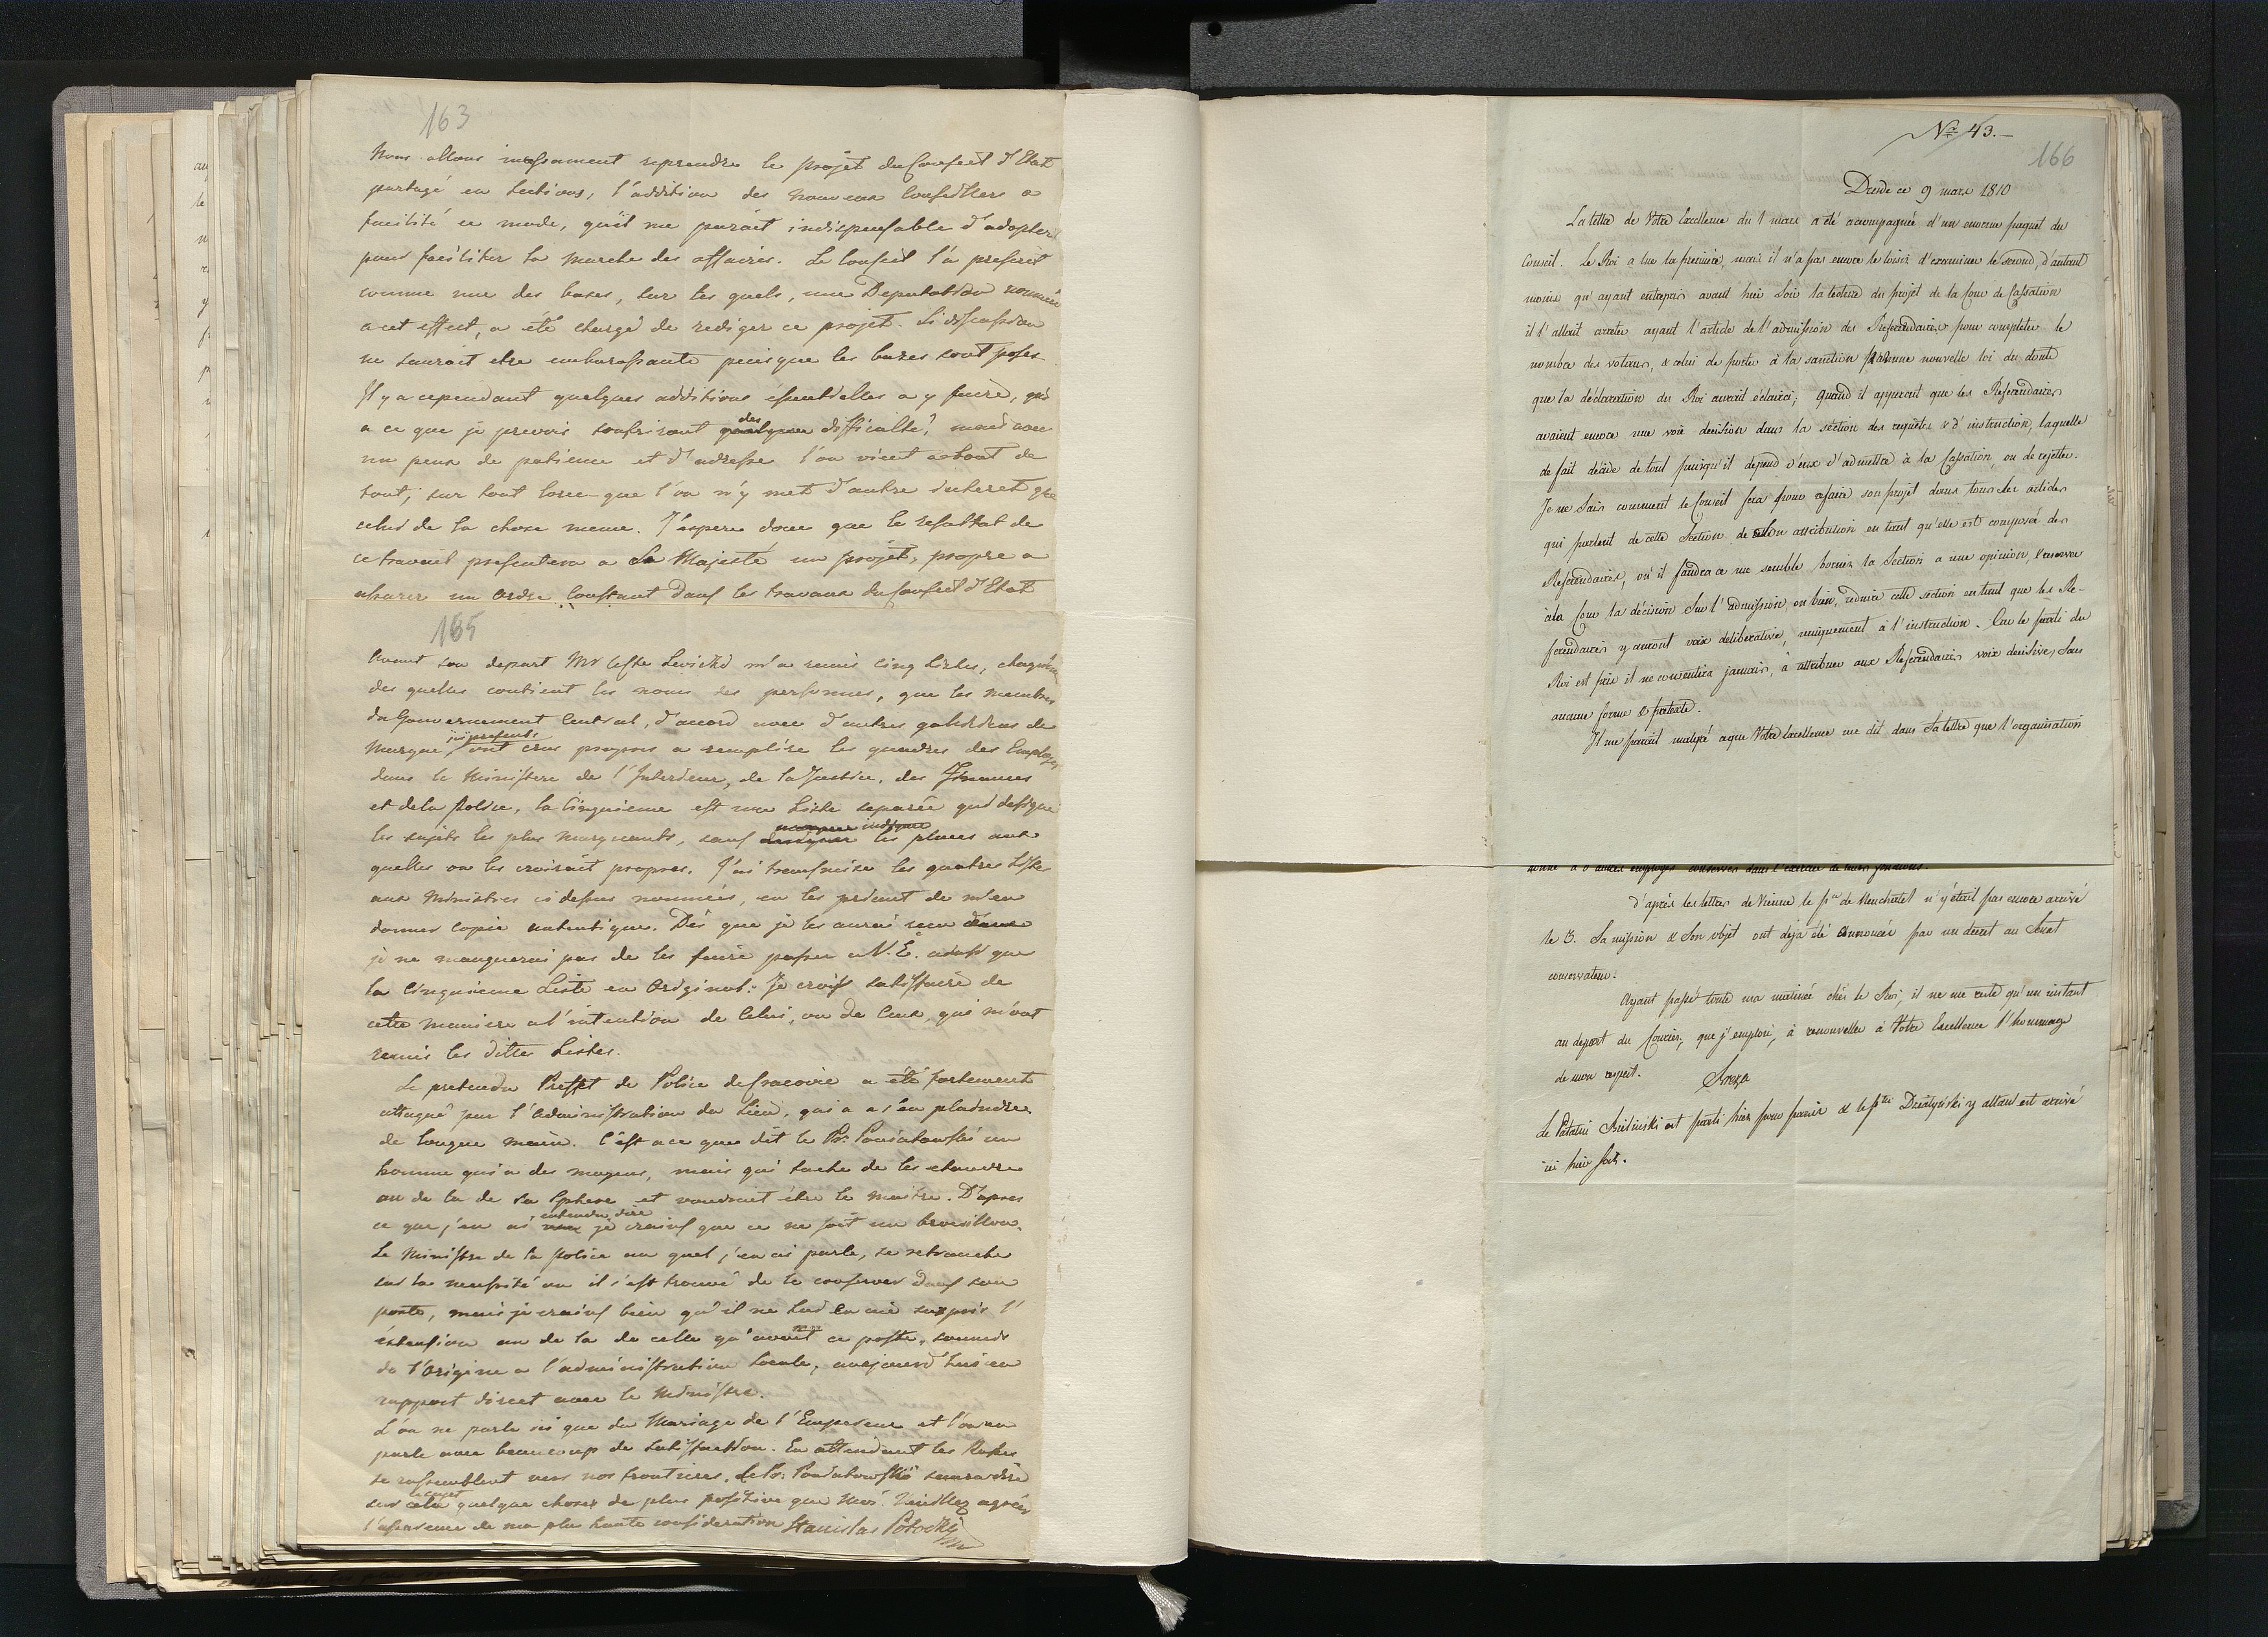 163
Nous allons incessament reprendre le projet du Conseil d'Etat
partagé en sections, l'addition des nouveaux Conseillers a
facilité ce mode, qu'il me parait indispensable d'adopter
pour faciliter la marche des affaires. Le Conseil l'a prescrit
comme une des bases, sur les quels, une Deputation nommée
a cet effect, a été chargé de rediger ce projet. La discussion
ne sauroit etre embarassante puisque les bases sont posés.
Il y a cependant quelques additions essentielles a y faire, qui
a ce que je prevois soufriront des difficulté, mais avec
un peux de patience et d'adresse l'on vient a bout de
tout; sur tout lorsque l'on n'y met d'autre interet que
celui de la chose meme. J'espere donc que le resultat de
ce travail presentera a Sa Majesté un projet, propre a
assurer un ordre Constant dans les travaux du Conseil d'Etat
165
Avant son depart Mr Lewicki m'a remis cinq Listes, chaqu'une
des quelles contient les noms des personnes, que les membres
du Gouvernement Central, d'accord avec d'autres galiciens de
marque, ici presents ont crus propres a remplire les quadres des Employés
dans le Ministere de l'Interieur, de la Justice, des Finances
et de la Police, la Cinquieme est une Liste separée qui designe
les sujets les plus marquants, sauf indiquer les places aux
quelles on les croirait propres. J'ai transmise les quatre Listes
aux Ministres ci dessus nommés, en les priant de m'en
donner Copie autentique. Dès que je les aurai
je ne manquerai pas de les faire passer a V. E. aussi que
la Cinquieme Liste en Original. Je crois satisfaire de
cette maniere a l'intention de Celui, ou de Ceux, qui m'ont
remis les dittes Listes.
Le pretendu Prefet de Police de Cracovie a été fortement
attaqué par l'Administration du Lieu, qui a a s'en plaindre
de longue main. C'est a ce que dit le Pr: Poniatowski un
homme qui a des moyens, mais qui tache de les etandre
au de la de sa Sphere et voudrait être le maitre. D'apres
ce que j'en ai entendu dire je crains que ce ne soit un brouillon.
Le Ministre de la police au quel j'en ai parlé, se retranche
sur la necessité ou il s'est trouvé de le conserver dans son
poste, mais je crains bien qu'il ne lui en aie surpris l'
extension au de la de celle qu'avait ce poste, soumis
de l'origine a l'administration Locale, aujourd'hui en
rapport direct avec le Ministre.
L'on ne parle ici que du Mariage de l'Empereur et l'on en
parle avec beaucoup de satisfaction. En attendant les Russes
se rassemblent vers nos frontieres. Le Pr: Poniatowski saura dire
sur ce sujet quelque chose de plus positive que moi. Veuillez agréer
l'assurence de ma plus haute consideration Stanislas Potocki
No 43.
166
Dresde ce 9 mars 1810
La lettre de Votre Excellence du 1 mars a été accompagnée d'un enorme paquet du
Conseil. Le Roi a lue la premiere, mais il n'a pas encore le loisir d'examiner le second, d'autant
moins qu'ayant entrepris avant hier Soir la lecture du projet de la Cour de Cassation
il l'allait arreter ayant l'article de l'admission des Referendaires pour completer le
nombre des votans, & celui de porter à la sanction nouvelle loi du doute
que la déclaration du Roi aurait éclairci; quand il apperçut que les Referendaires
avaient encore une voix decisive dans la section des requêtes & d'instruction, laquelle
de fait décide de tout puisqu'il depend d'eux d'admettre à la Cassation, ou de rejetter.
Je ne sais comment le Conseil fera pour refaire son projet dans tous les articles
qui parlent de cette Section, de son attribution en tant qu'elle est composée des
Referendaires, où il faudra ce me semble borner la Section a une opinion, & reserver
à la Cour la décision sur l'admission, ou bien, reduire cette section en tant que les Re-
ferendaires y auront voix deliberative, uniquement à l'instruction. Car le parti du
Roi est pris il ne consentira jamais, à attribuer aux Referendaires voix decisive, sous
aucune forme & pretexte.
Il me parait malgré ce que Votre Excellence me dit dans Sa lettre que l'organisation
d'autres employés conservés dans l'exercice de leurs fonctions.
d'après les lettres de Vienne le pce de Neuchatel n'y était pas encore arrivé
le 3. Sa mission & Son objet ont deja été annoncés par un decret au Senat
conservateur.
Ayant passé toute ma matinée chés le Roi, il ne me reste qu'un instant
au depart du Courier, que j'emploie, à renouveller à Votre Excellence l'hommage
de mon respect. Breza
Le Palatin Bielinski est parti hier pour Paris & le Dzialynski y allant est arrivé
ici hier soir.